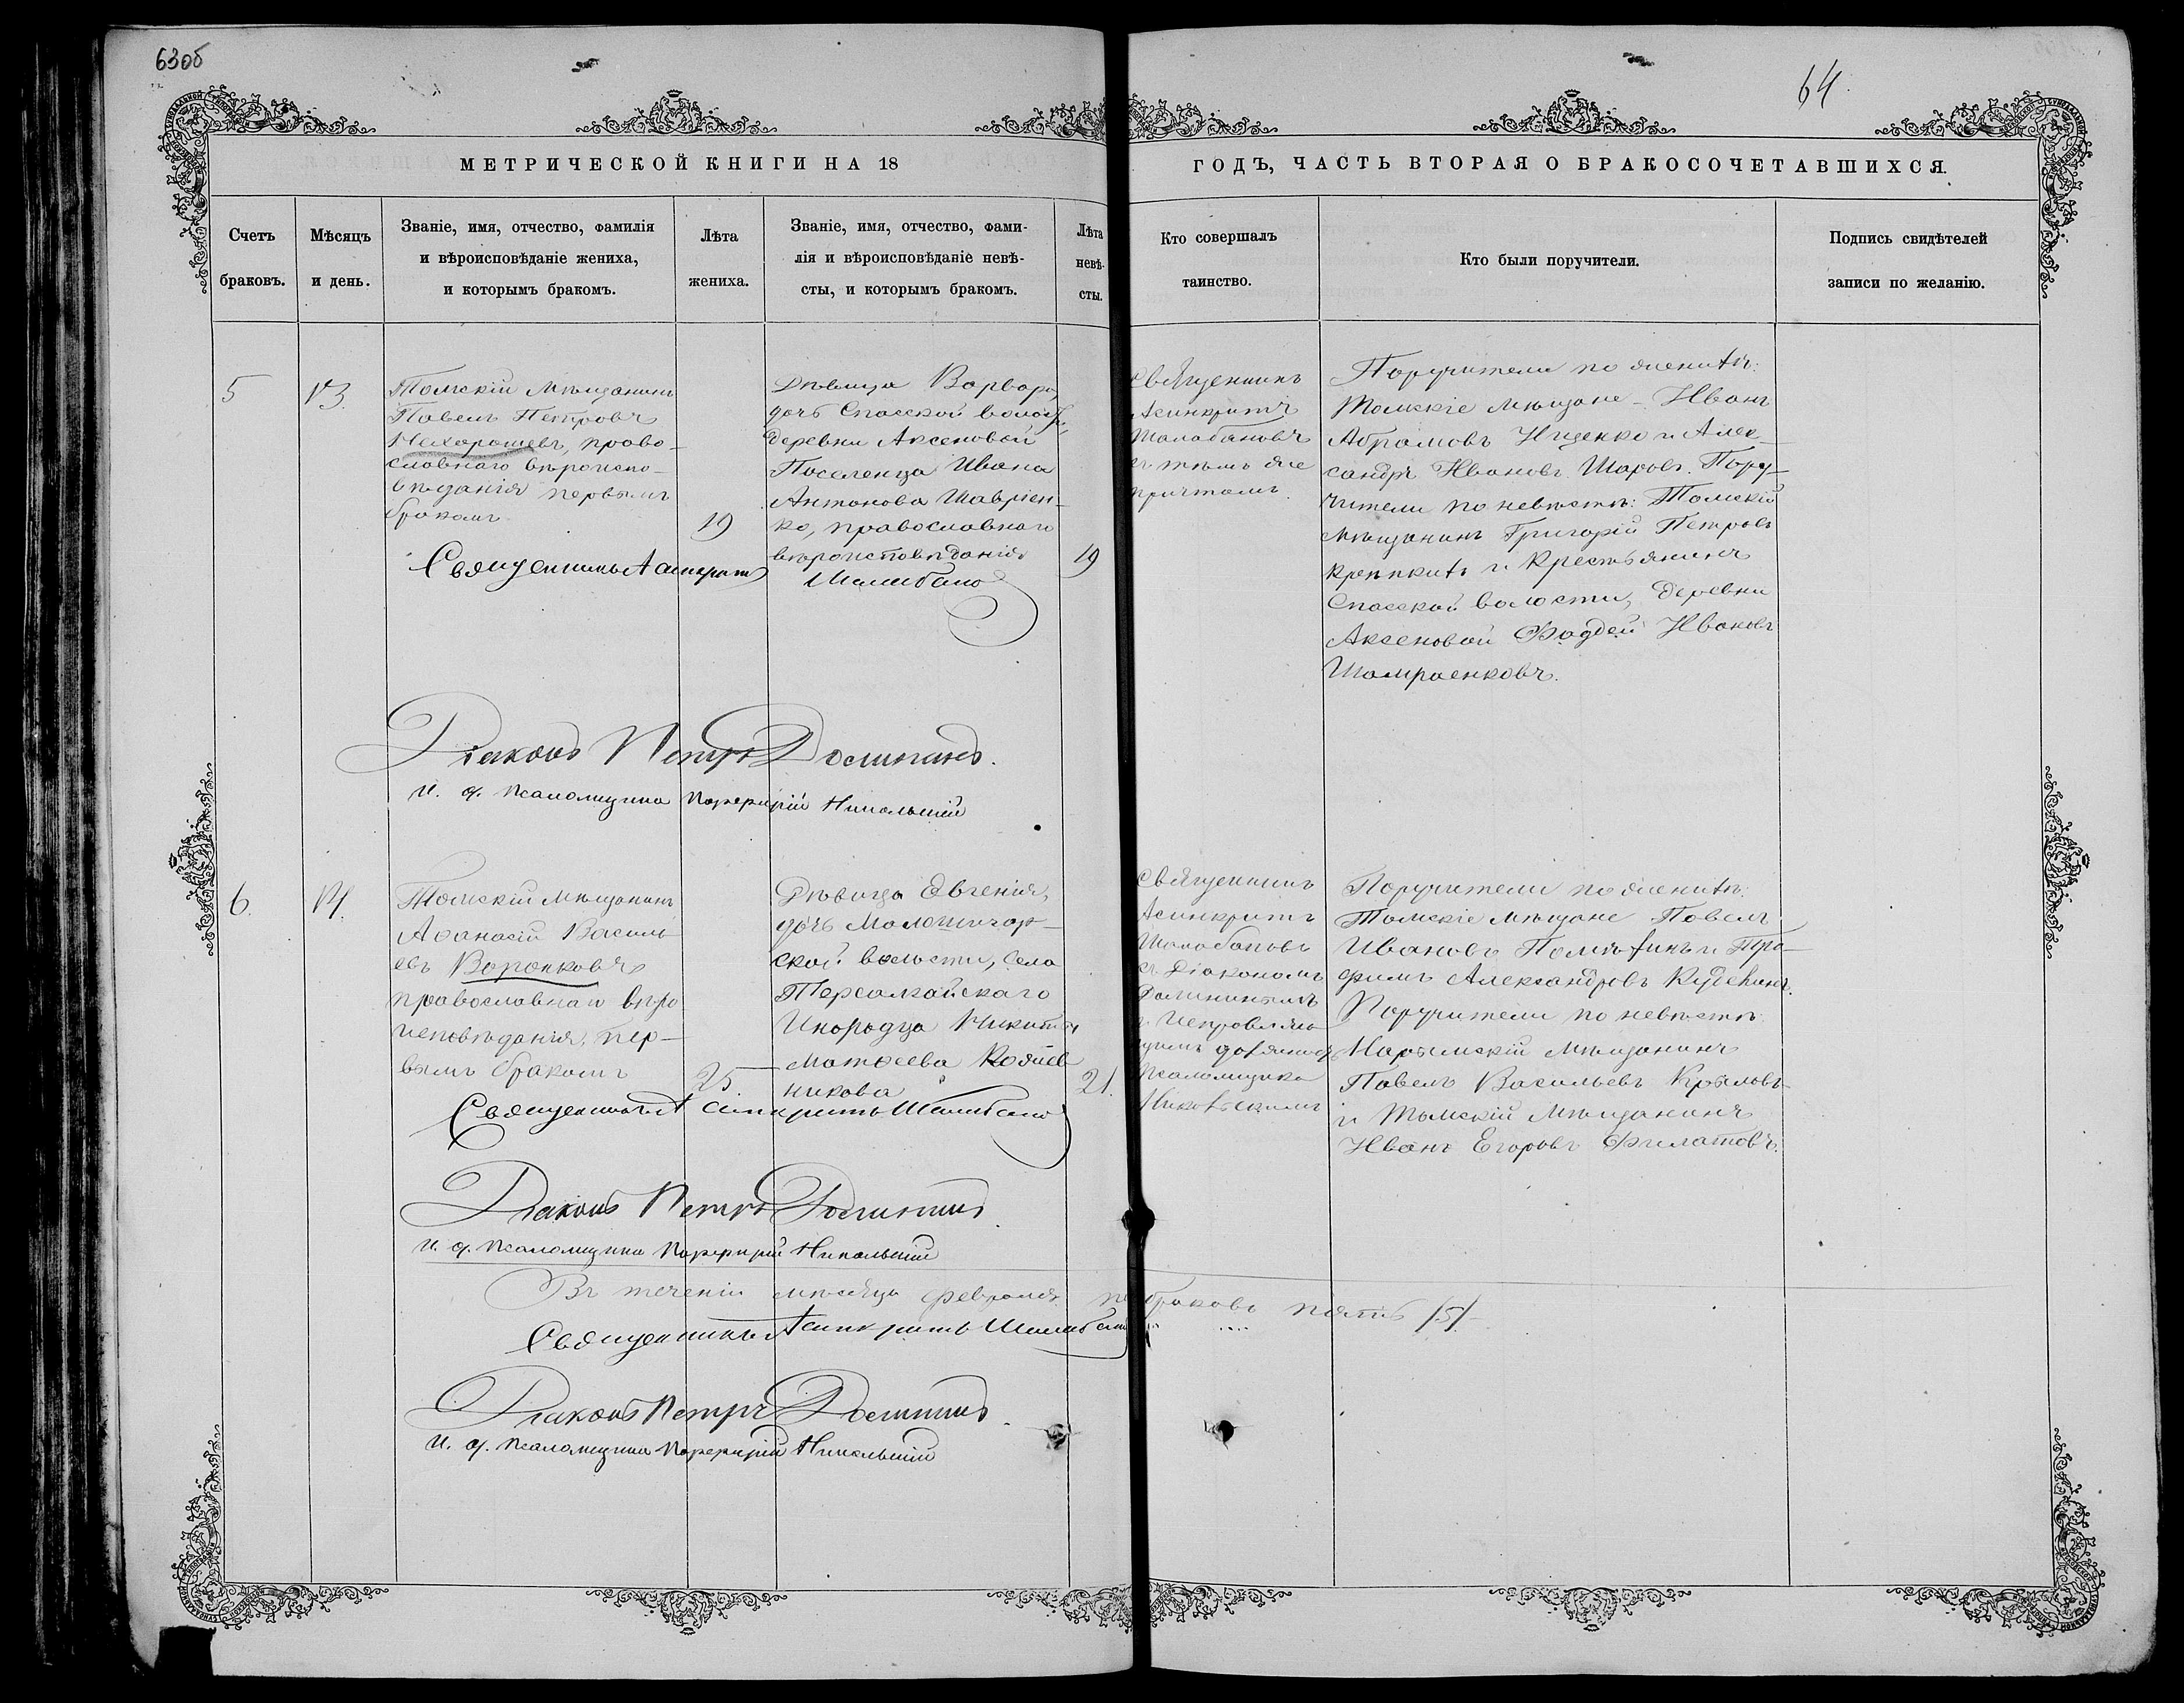 63об
64.
МЕТРИЧЕСКОЙ КНИГИ НА 18
ГОДЪ, ЧАСТЬ ВТОРАЯ О БРАКОСОЧЕТАВШИХСЯ.
Счетъ браковъ.
Мѣсяцъ и день.
Званіе, имя, отчество, фамилія
и вѣроисповѣданіе жениха,
и которымъ бракомъ.
Лѣта
жениха.
Званіе, имя, отчество, фами-
лія и вѣроисповѣданіе невѣ-
сты, и которымъ бракомъ.
Лѣта
невѣ-
сты.
Кто совершалъ
таинство.
Кто были поручители.
Подпись свидѣтелей
записи по желанію.
5
13.
Томскій мѣщанинъ
Павелъ Петровъ
Нехорошевъ, право-
славнаго вѣроиспо-
вѣданія первымъ
бракомъ
19
Дѣвица Варвара,
дочь Спасской волости,
деревни Аксеновой
Поселенца Ивана
Антонова
ко, православнаго
вѣроисповѣданія
19
Священникъ
Асинкритъ
съ тѣмъ же
причтомъ.
Поручители по женихѣ:
Томскіе мѣщане - Иванъ
Абрамовъ Ищенко и Алек-
сандръ Ивановъ Шаровъ. Пору-
чители по невѣстѣ: Томскій
мѣщанинъ Григорій Петровъ
и Крестьянинъ
Спасской волости, деревни
Аксеновой Фадей Ивановъ
Шамраенковъ.
Священникъ Асинкритъ
Діаконъ Петръ
И. д. псаломщика Порфирій Никольскій
6.
14.
Томскій мѣщанинъ
Аѳанасій Василь
евъ Воронковъ
православнаго вѣро
исповѣданія, пер-
вымъ бракомъ
25
Дѣвица Евгенія,
дочь
ской волости, села
Инородца Никиты
Матѳеева
никова
21.
Священникъ
Асинкритъ
съ Діакономъ
и исправляю
щимъ должность
Псаломщика
Никольскимъ
Поручители по женихѣ:
Томскіе мѣщане Павелъ
Ивановъ и Тро-
фимъ Александровъ
Поручители по невѣстѣ:
Нарымскій мѣщанинъ
Павелъ Васильевъ Крыловъ
и Томскій мѣщанинъ
Иванъ Егоровъ Филатовъ.
Священникъ Асинкритъ
Діаконъ Петръ
И. д. псаломщика Порфирій Никольскій
Въ теченіи мѣсяца февраля браковъ пять /5/
Священникъ Асинкритъ
Діаконъ Петръ
И. д. псаломщика Порфирій Никольскій